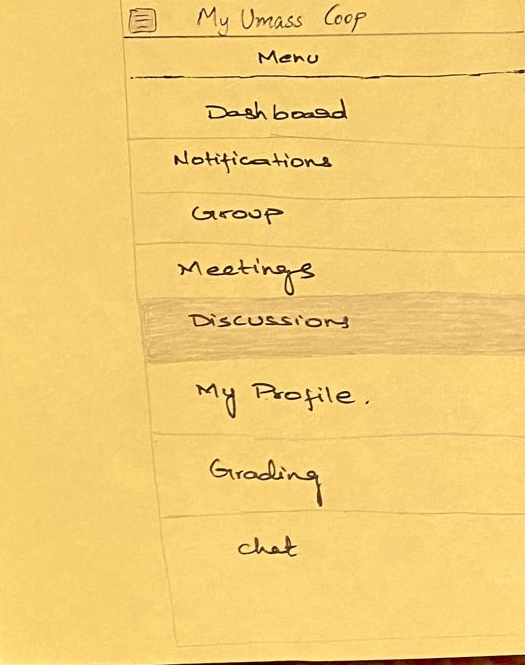 My Umass Coop
Menu
Dashboard
Notifications
Group
Meetings
Discussions
My Profile.
Grading
chat